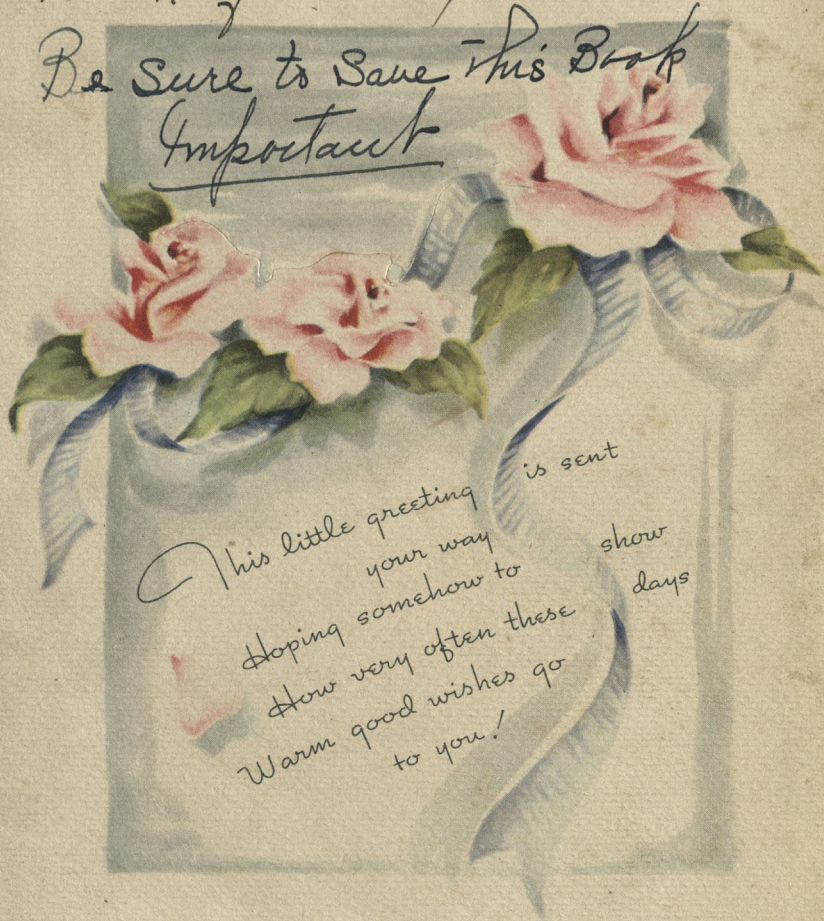 Be Sure to Save This Book
Important
This little greeting is sent
your way
Hoping somehow to show
How very often these days
Warm good wishes go
to you!